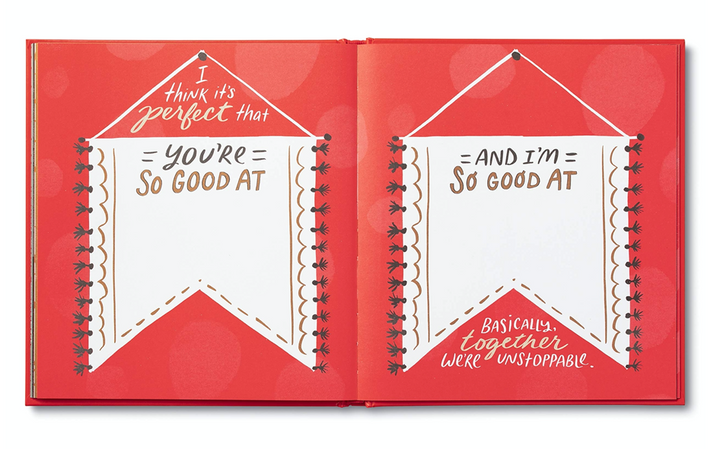 I
think it's
perfect that
= YOU'RE =
SO GOOD AT
= AND I'M =
SO GOOD AT
BASICALLY,
together
WE'RE UNSTOPPABLE.